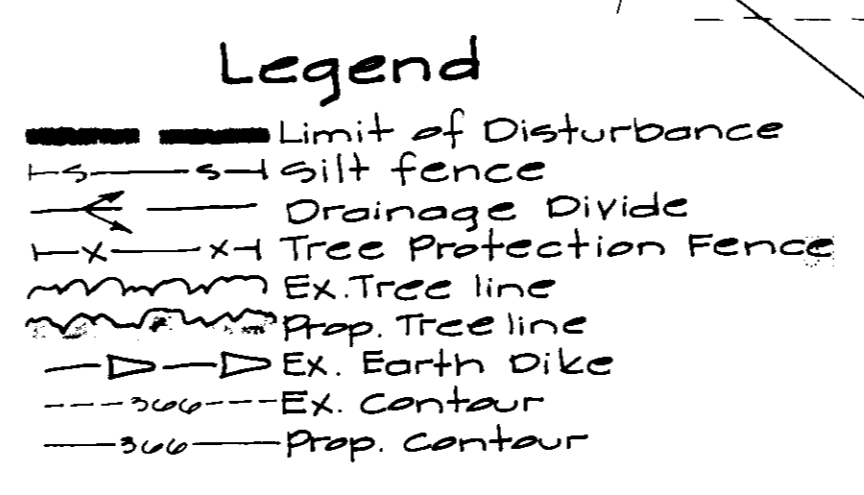 Legend
Limit of Disturbance
S S Silt fence
Drainage Divide
X X Tree Protection Fence
Ex. Tree line
Prop. Tree line
Ex. Earth Dike
366 Ex. Contour
366 Prop. Contour